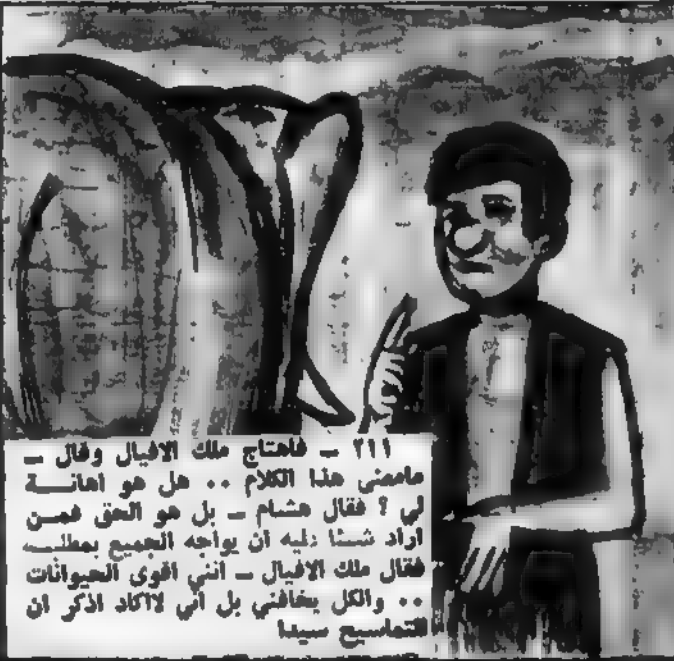 ٢١١ ـ فاهتاج ملك الافيال وقال ـ
مامعنى هذا الكلام .. هل هو اهانـــة
لي ؟ فقال هشام ـ بل هو الحق فمـن
اراد شيئا عليه ان يواجه الجميع بمطلبـــه
فقال ملك الافيال ـ انني اقوى الحيوانات
.. والكل يخافني بل اني لااكاد اذكر ان
للتماسيح سيدا